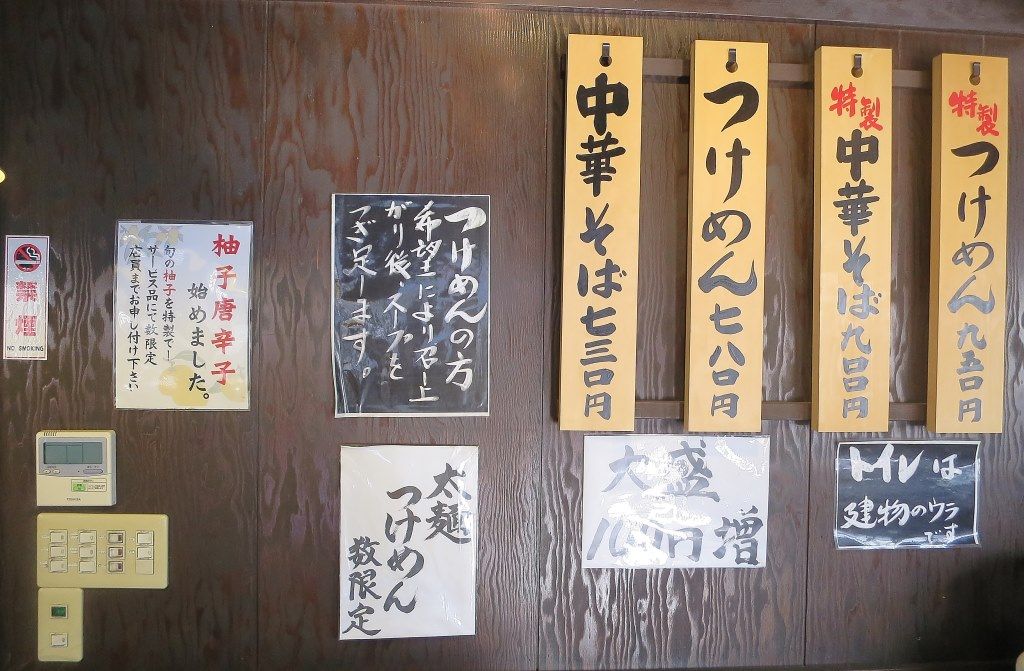 特製
つけめん九五〇円
特製
中華そば九〇〇円
つけめん七八〇円
中華そば七三〇円
つけめんの方
希望により召し上
がり後、スープを
柚子唐辛子
始めました。
旬の柚子を特製で!
サービス品にて数限定
店員までお申し付け下さい
禁煙
NO SMOKING
太麺
つけめん
数限定
大盛
円増
トイレは
建物のウラ
です
TOSHIBA